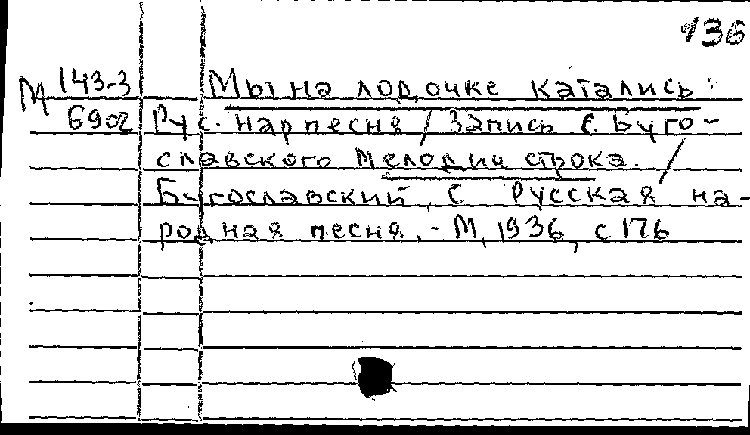 136
М 143-3 Мы на лодочке катались:
6902 Рус. нар песня / Запись С. Буго-
славского Мелодия строка. /
Бугославский, С Русская на-
родная песня. - М, 1936, с 176